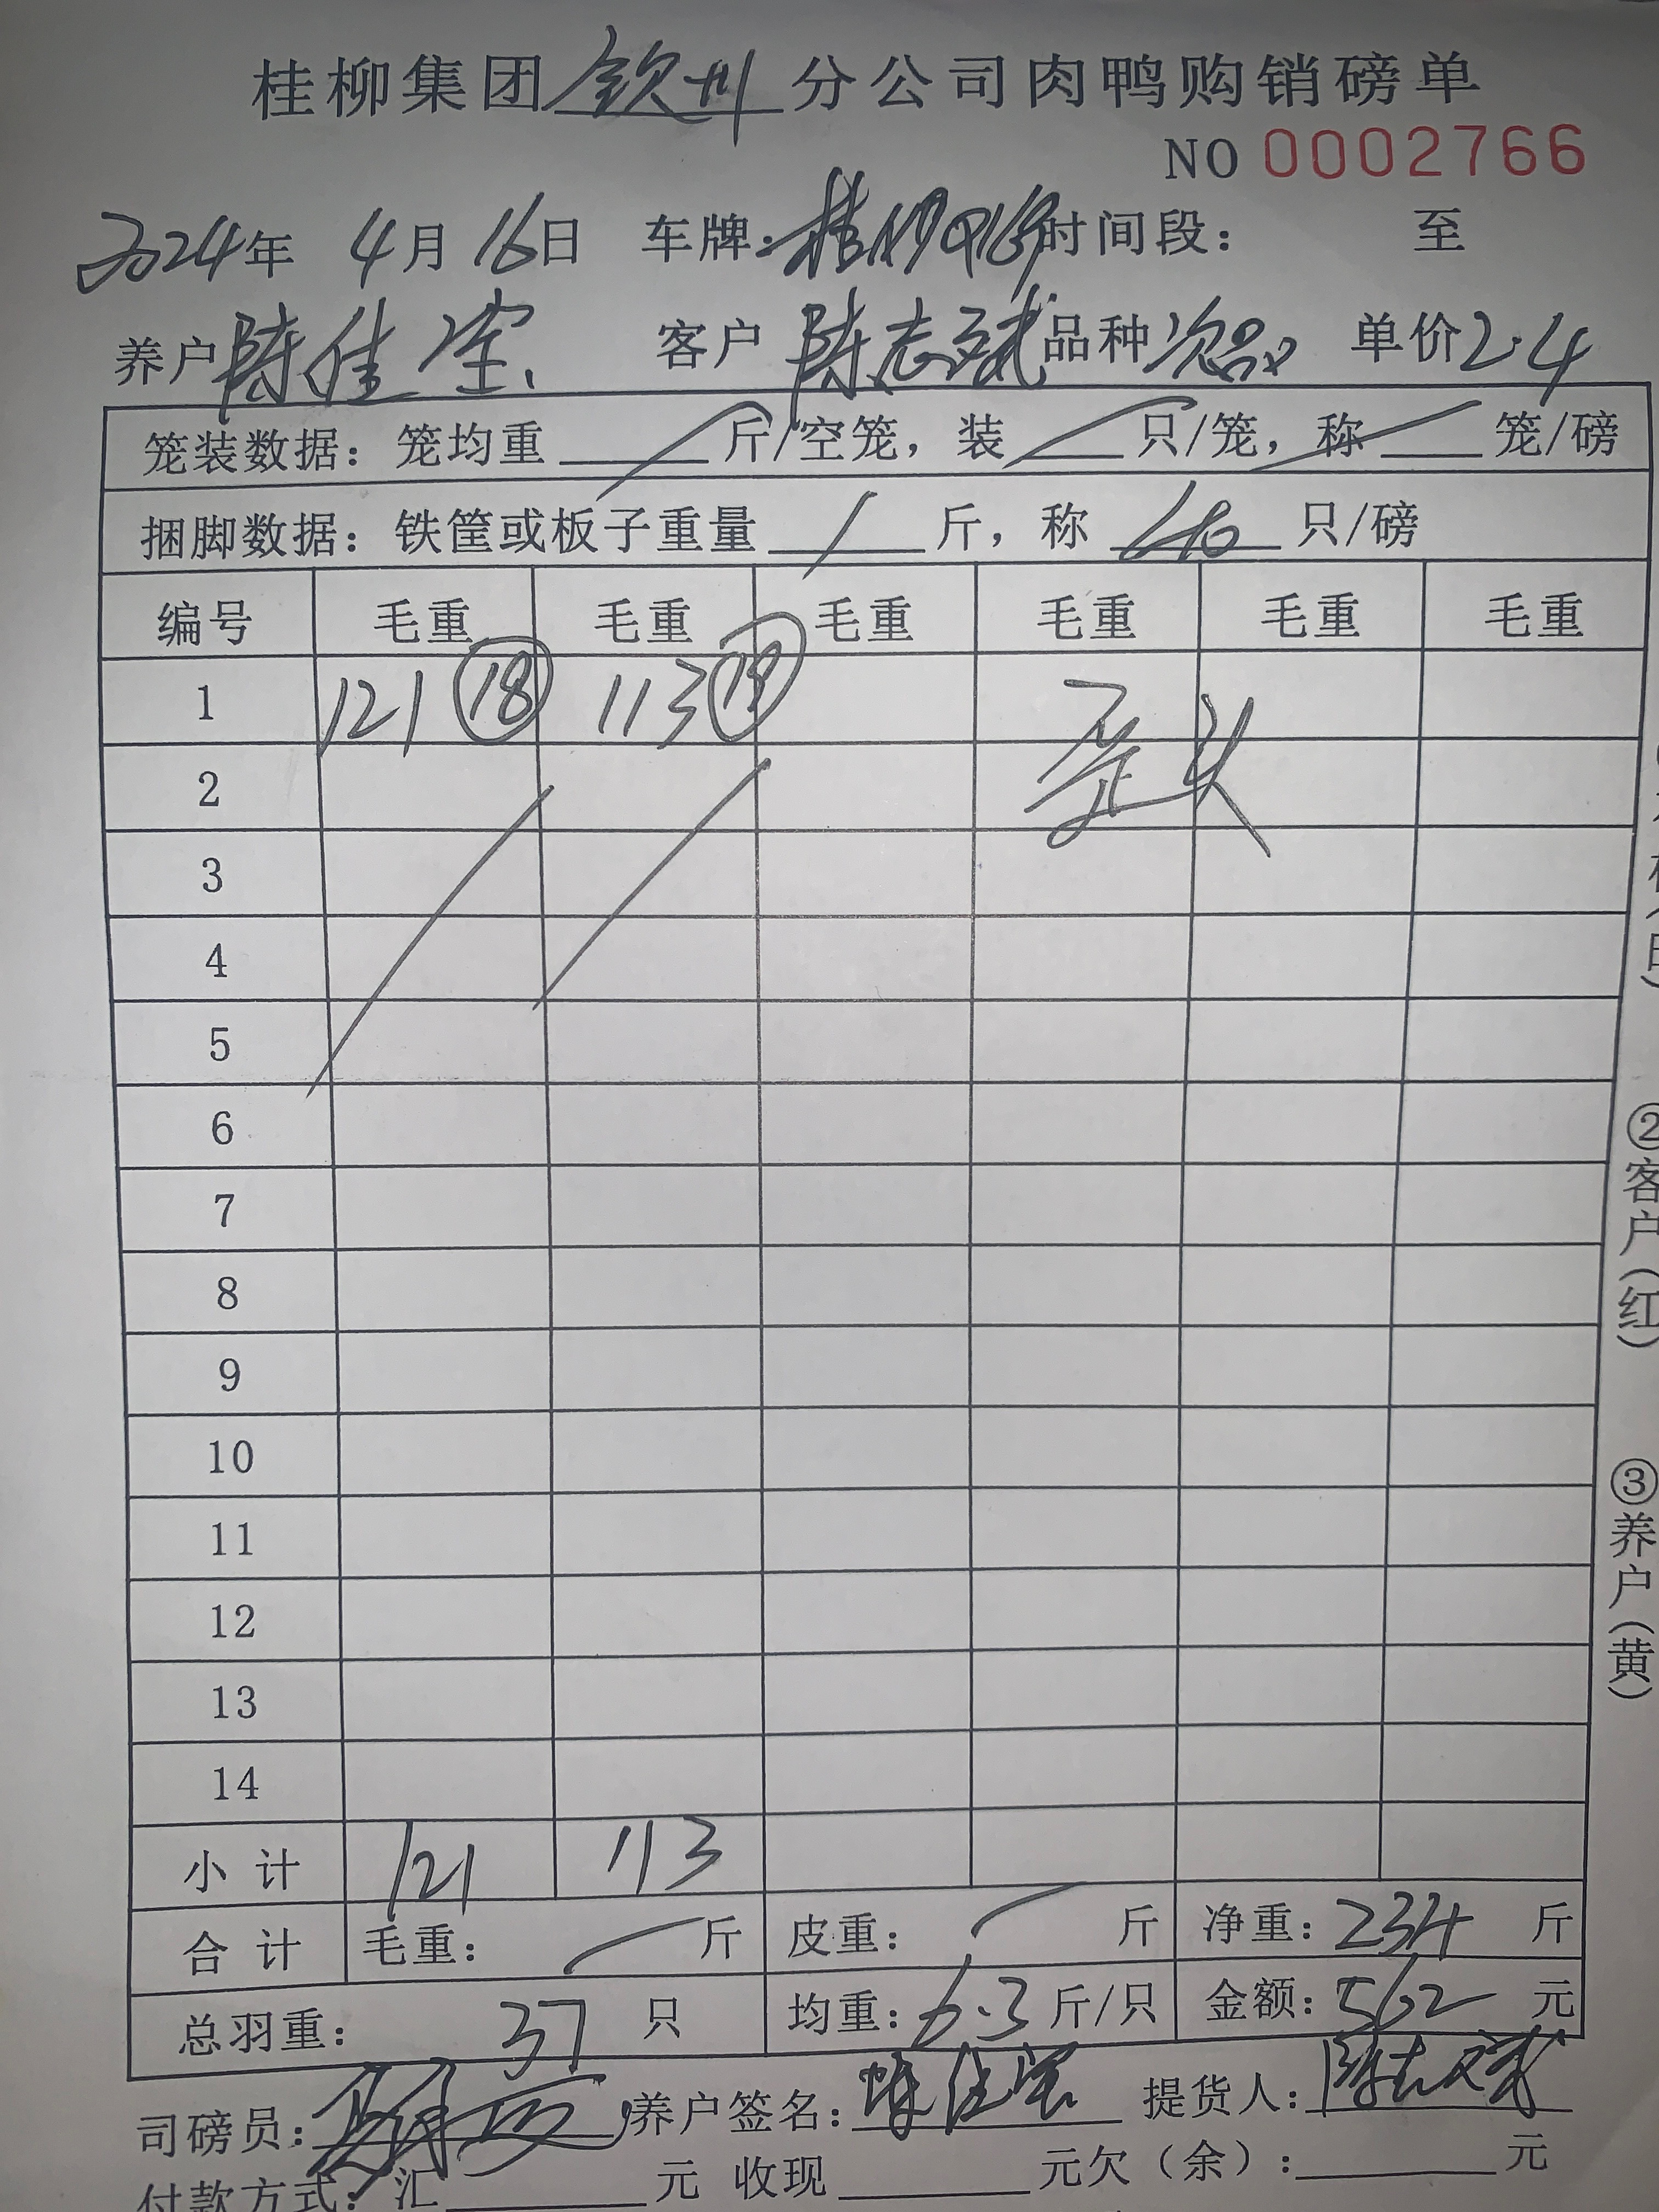 桂柳集团钦州分公司肉鸭购销磅单
NO 0002766
2024年 4月 16日 车牌: 时间段: 至
养户陈佳宝 客户 陈志斌 品种次品 单价2.4
笼装数据: 笼均重 斤/空笼, 装 只/笼, 称 笼/磅
捆脚数据: 铁筐或板子重量 / 斤, 称 40 只/磅
编号 毛重 毛重 毛重 毛重 毛重 毛重
1 121 18 113 19
歪头
2
3
4
5
6
7
8
9
10
11
12
13
14
小计 121 113
合计 毛重: 斤 皮重: 斤 净重: 234 斤
总羽重: 37 只 均重: 6.3 斤/只 金额: 562 元
司磅员: 养户签名: 陈佳宝 提货人: 陈志斌
付款方式: 汇 元 收现 元欠(余): 元
②客户(红)
③养户(黄)